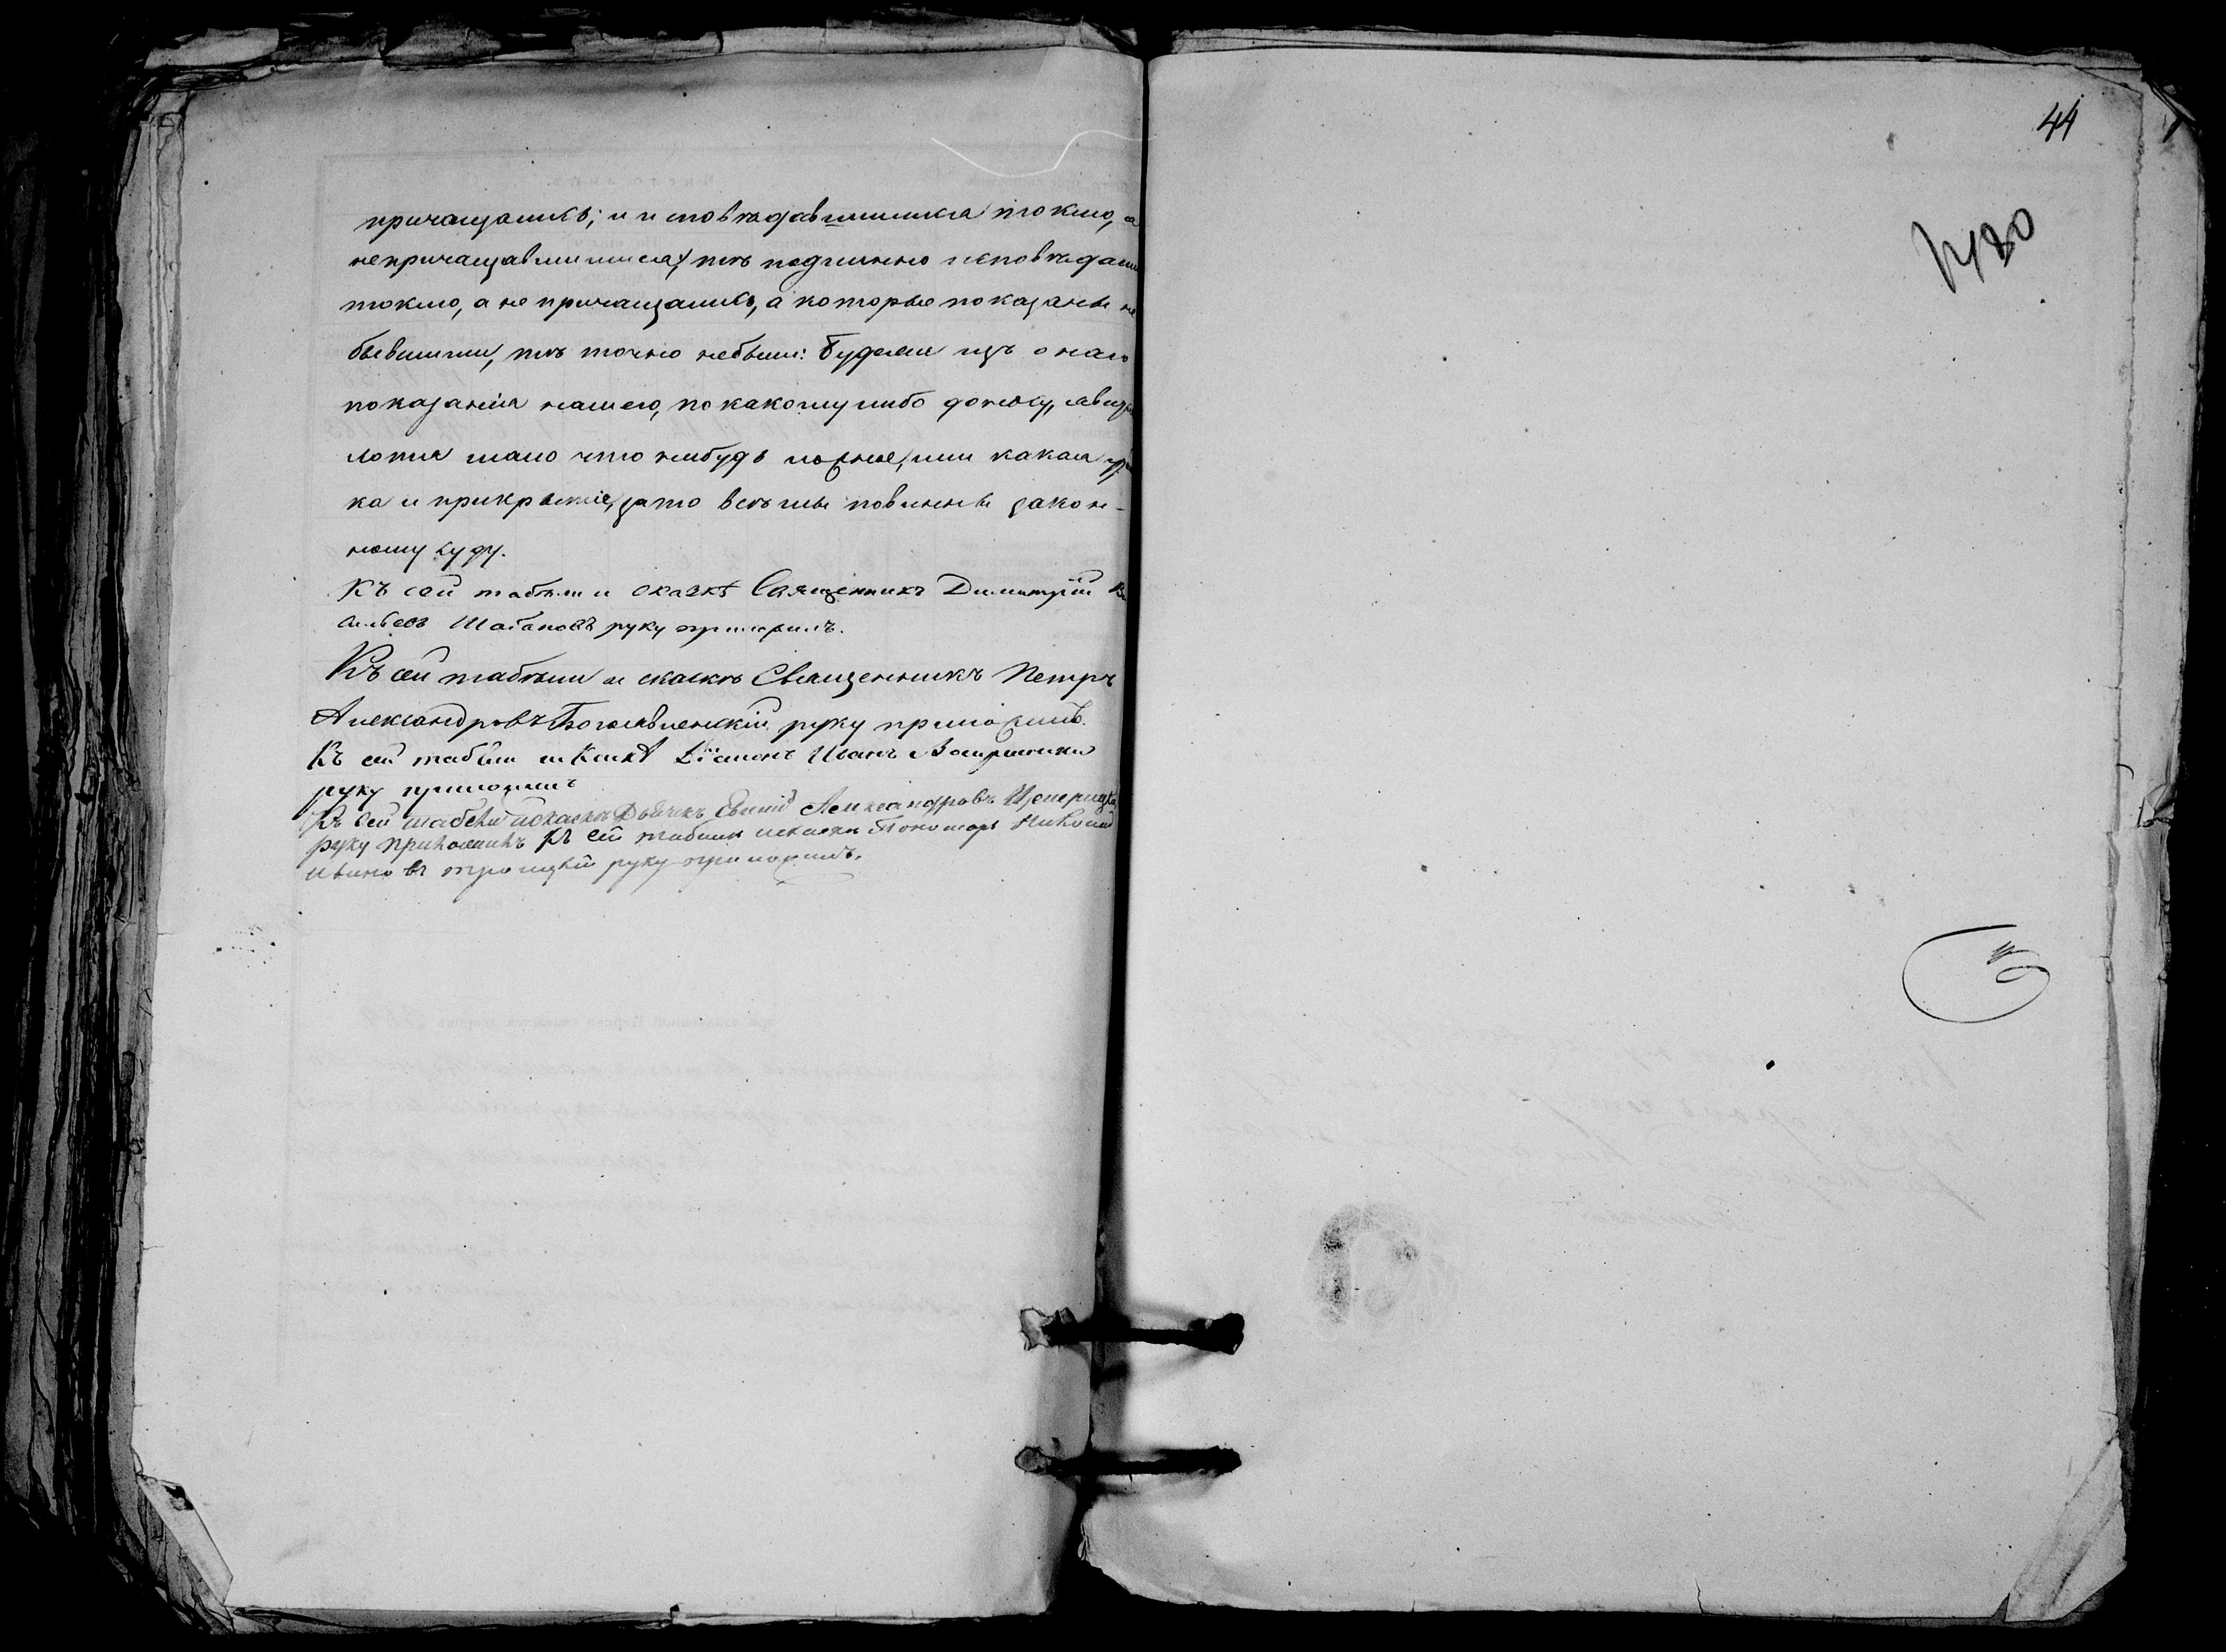 причащались; и исповѣдавшимися токмо, а
непричащавшимися, тѣ подлинно исповѣдали
токмо, а не причащались, а которые показаны не
бывшими, тѣ точно небыли: Будеже изъ онаго
показанія нашего, по какому либо доносу, явиж
лотя мало что нибудь ложное, или какая
ка и прикрытіе, зато всѣ мы повинны закон-
ному суду.
Къ сей табели и сказкѣ Священникъ Димитрій Ва
сильевъ Шабановъ руку приложилъ.
Къ сей табели и сказкѣ Священникъ Петръ
Александровъ Богоявленскій руку приложилъ.
Къ сей табели и сказкѣ Діаконъ Иванъ
руку приложилъ
Къ сей табели и сказкѣ Дьячекъ Александровъ
руку приложилъ Къ сей табели и сказки Пономарь Николай
Ивановъ Троицкій руку приложилъ.
44